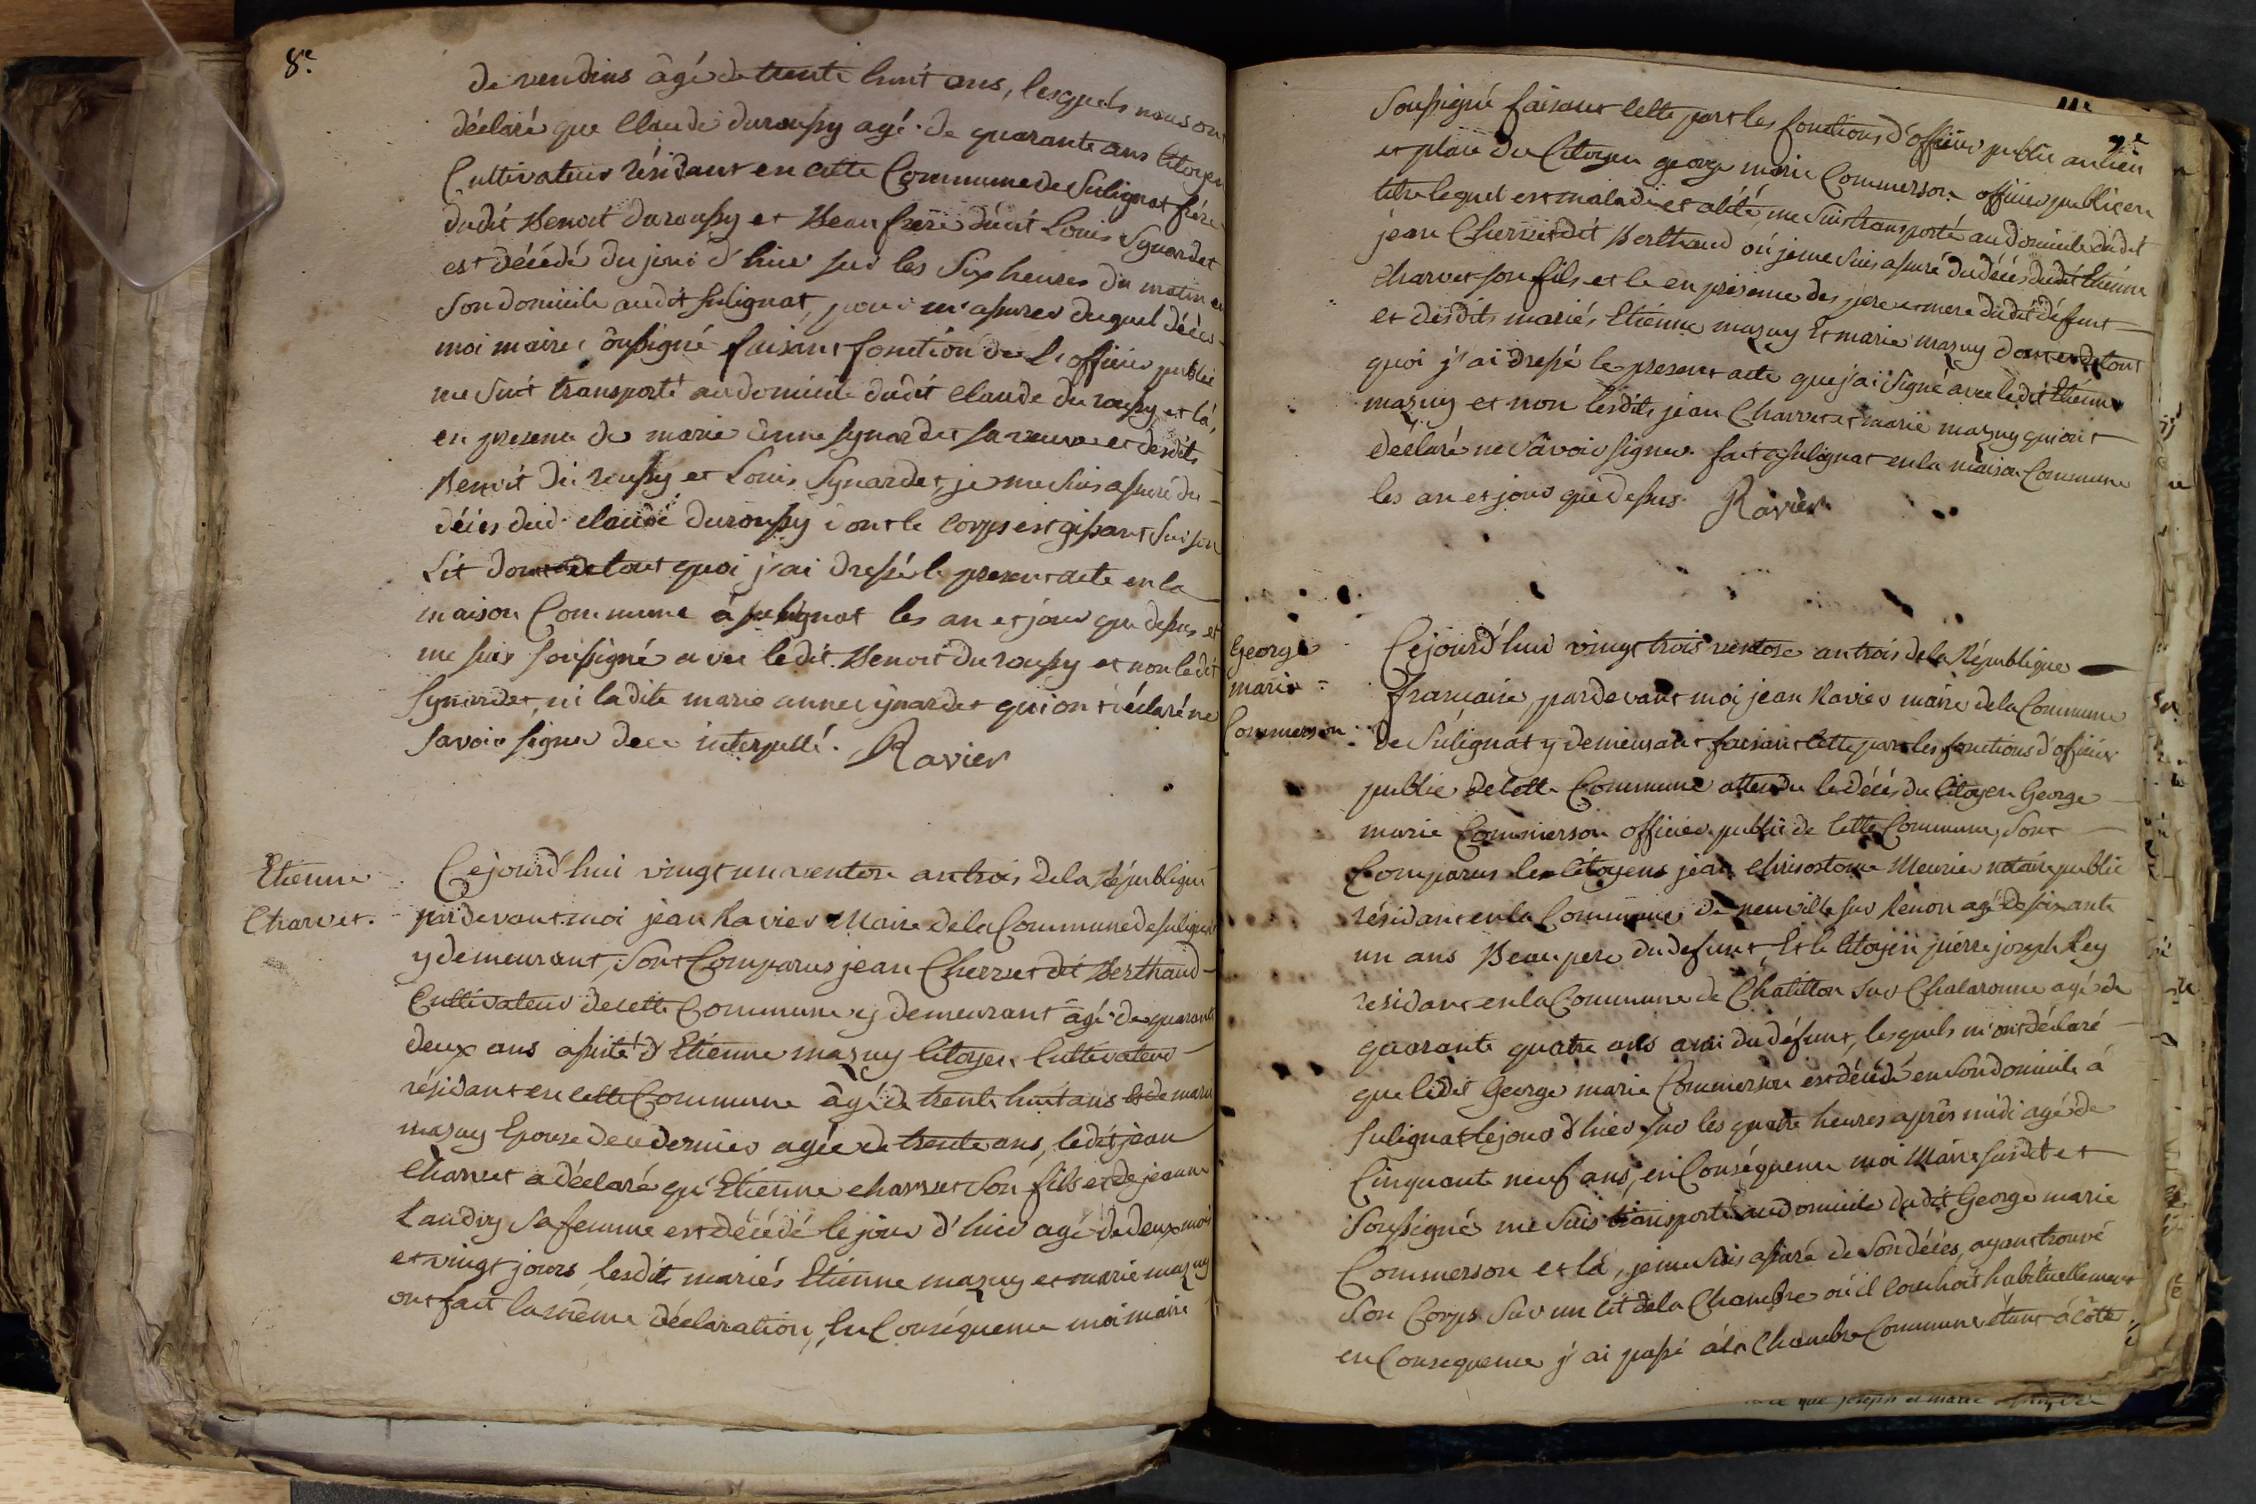 8e.
de vendins âgé de trente huit ans, lesquels nous ont
déclaré que Claude duroussy agé de quarante ans Citoyen
Cultivateur résidant en cette Commune de Sulignat frère
dudit Benoit duroussy et Beaufrere dudit Louis Synardet
est décédé du jour d'hier sur les Six heures du matin en
Son domicile audit Sulignat, pour m'assurer duquel décès
moi maire soussigné faisant fonction de l'officier public
me suis transporté au domicile dudit Claude duroussy, et là,
en presence de marie anne synardet sa veuve et desdits
Benoit duroussy et Louis Synardet, je me suis assuré du
décès dud. claude duroussy dont le corps est gissant sur son
Lit dont et de tout quoi j'ai dressé le present acte en la
maison Commune à sulignat les an et jour que dessus et
me suis soussigné avec ledit Benoit duroussy et non ledit
Synardet, ni ladite marie anne synardet qui ont déclaré ne
savoir signer de ce interpellé. Ravier
Etienne
Charvet.
Cejourd'hui vingt un ventose an trois de la République
pardevant moi jean Ravier Maire de la Commune de sulignat
y demeurant, Sont Comparus jean Chervet dit Berthaud
Cultivateur de cette Commune y demeurant âgé de quarante
deux ans assisté d'Etienne mazuy Citoyen Cultivateur
résidant en cette Commune âgé de trente huit ans et de marie
mazuy Epouse de ce dernier agée de trente ans, ledit jean
Charvet a déclaré qu'Etienne charvet Son fils et de jeanne
Landry Sa femme est décédé le jour d'hier agé de deux mois
et vingt jours, lesdits mariés Etienne mazuy et marie mazuy
ont fait la même déclaration, En Conséquence moi maire
9e
Soussigné faisant cette part les fonctions d'officier public au lieu
et place du Citoyen george marie Commerson officier public en
titre lequel est malade et alité, me suis transporté au domicile dudit
jean Chervet dit Berthaud où je me suis assuré du décès dudit Etienne
Charvet son fils et ce en présence des pere et mere dudit défunt
et desdits mariés Etienne mazuy Et marie mazuy dont et de tout
quoi j'ai dressé le present acte que j'ai signé avec ledit Etienne
mazuy et non lesdits jean Charvet et marie mazuy qui ont
declaré ne savoir signer. fait a sulignat en la maison Commune
les an et jour que dessus. Ravier
George
marie
Commerson
Cejourd'hui vingt trois ventose an trois de la République
francaise, pardevant moi jean Ravier maire de la Commune
de Sulignat y demeurant faisant cette part les fonctions d'officier
public de cette Commune attendu le décès du Citoyen George
marie Commerson officier public de cette Commune, Sont
Comparus les Citoyens jean Chrisostome Meurier notaire public
résidant en la Commune de neuville sur Renon agé de soixante
un ans Beaupere du defunt, Et le Citoyen pierre joseph Rey
residant en la Commune de Chatillon sur Chalaronne agé de
quarante quatre ans ami du défunt, lesquels m'ont déclaré
que ledit George marie Commerson est décédé en son domicile à
sulignat le jour d'hier sur les quatre heures après midi agé de
Cinquante neuf ans, en Conséquence moi Maire susdit et
Soussigné me suis transporté au domicile dudit George marie
Commerson et là, je me suis assuré de son décès, ayant trouvé
Son Corps sur un lit de la Chambre où il couchoit habituellement
en Consequence j'ai passé à la Chambre Commune étant à côté
que joseph et marie